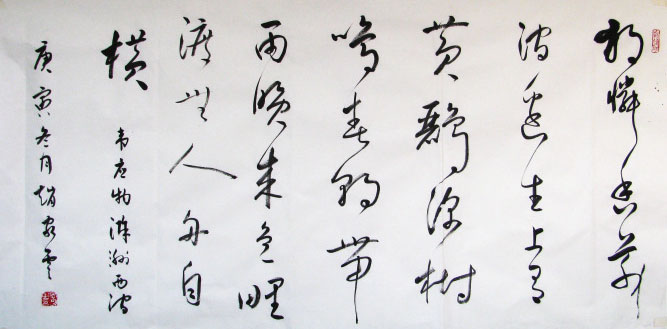 独憐幽草
涧边生上有
黄鹂深树
鸣春潮带
雨晚来急野
渡无人舟自
横
韦应物滁洲西涧
庚寅冬月赵家云